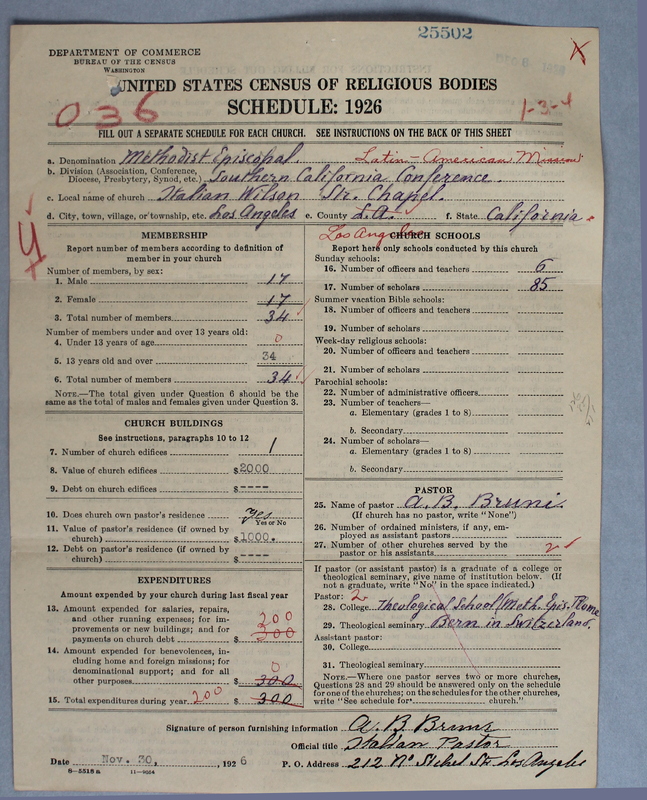 25502
DEPARTMENT OF COMMERCE
BUREAU OF THE CENSUS
WASHINGTON
X
UNITED STATES CENSUS OF RELIGIOUS BODIES
SCHEDULE: 1926
036
1-3-4
FILL OUT A SEPARATE SCHEDULE FOR EACH CHURCH. SEE INSTRUCTIONS ON THE BACK OF THIS SHEET
a. Denomination Methodist Episcopal. Latin-American Mission
b. Division (Association, Conference, Diocese, Presbytery, Synod, etc.) Southern California Conference.
c. Local name of church Italian Wilson Str. Chapel.
d. City, town, village, or township, etc. Los Angeles e. County L.A. f. State California
Los Angeles
MEMBERSHIP
Report number of members according to definition of
member in your church
Number of members, by sex:
1. Male 17
2. Female 17
3. Total number of members 34
Number of members under and over 13 years old:
4. Under 13 years of age 0
5. 13 years old and over 34
6. Total number of members 34
NOTE.—The total given under Question 6 should be the
same as the total of males and females given under Question 3.
CHURCH BUILDINGS
See instructions, paragraphs 10 to 12
7. Number of church edifices 1
8. Value of church edifices $2000
9. Debt on church edifices $----
10. Does church own pastor's residence? yes
Yes or No
11. Value of pastor's residence (if owned by
church) $1000.
12. Debt on pastor's residence (if owned by
church) $----
EXPENDITURES
Amount expended by your church during last fiscal year
13. Amount expended for salaries, repairs,
and other running expenses; for im-
provements or new buildings; and for
payments on church debt $ 200
14. Amount expended for benevolences, in-
cluding home and foreign missions; for
denominational support; and for all
other purposes $ 0 300
15. Total expenditures during year 200 $ 300
CHURCH SCHOOLS
Report here only schools conducted by this church
Sunday schools:
16. Number of officers and teachers 6
17. Number of scholars 85
Summer vacation Bible schools:
18. Number of officers and teachers
19. Number of scholars
Week-day religious schools:
20. Number of officers and teachers
21. Number of scholars
Parochial schools:
22. Number of administrative officers
23. Number of teachers—
a. Elementary (grades 1 to 8)
b. Secondary
24. Number of scholars—
a. Elementary (grades 1 to 8)
b. Secondary
PASTOR
25. Name of pastor A. B. Bruni.
(If church has no pastor, write "None")
26. Number of ordained ministers, if any, em-
ployed as assistant pastors
27. Number of other churches served by the
pastor or his assistants 2
If pastor (or assistant pastor) is a graduate of a college or
theological seminary, give name of institution below. (If
not a graduate, write "No" in the space indicated.)
Pastor: 2
28. College Theological School (Meth. Epis. Rome
29. Theological seminary Bern in Switzerland.
Assistant pastor:
30. College
31. Theological seminary
NOTE.—Where one pastor serves two or more churches,
Questions 28 and 29 should be answered only on the schedule
for one of the churches; on the schedules for the other churches,
write "See schedule for church."
Signature of person furnishing information A. B. Bruni
Official title Italian Pastor
Date Nov. 30, , 1926 P. O. Address 212 No Sichel Str. Los Angeles
8-5518 a 11-9064